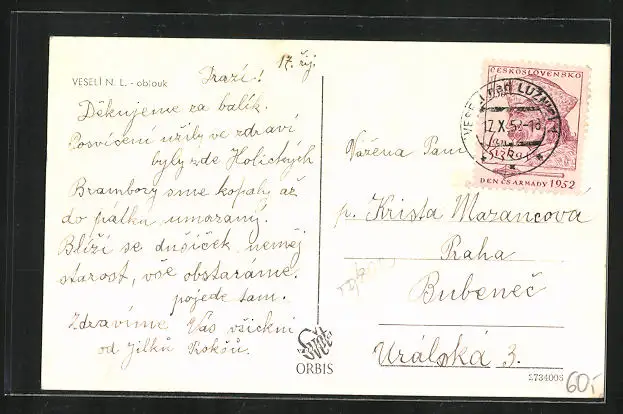 17. říj.
VESELÍ N. L. - oblouk
Drazí!
Děkujeme za balík.
Posvícení užily ve zdraví
byly zde Holických
Brambory sme kopaly až
do pátku umazaný.
Blíží se dušiček neměj
starost, vše obstaráme.
pojede tam.
Zdravíme Vás všickni
od Jílků Rokšů.
ORBIS
ČESKOSLOVENSKO
VESELÍ nad LUŽNICÍ
17.X.52-18
DEN ČS ARMÁDY 1952
Vážená Paní
p. Krista Mazancová
Praha
Bubeneč
Urálská 3.
2734006
60,-